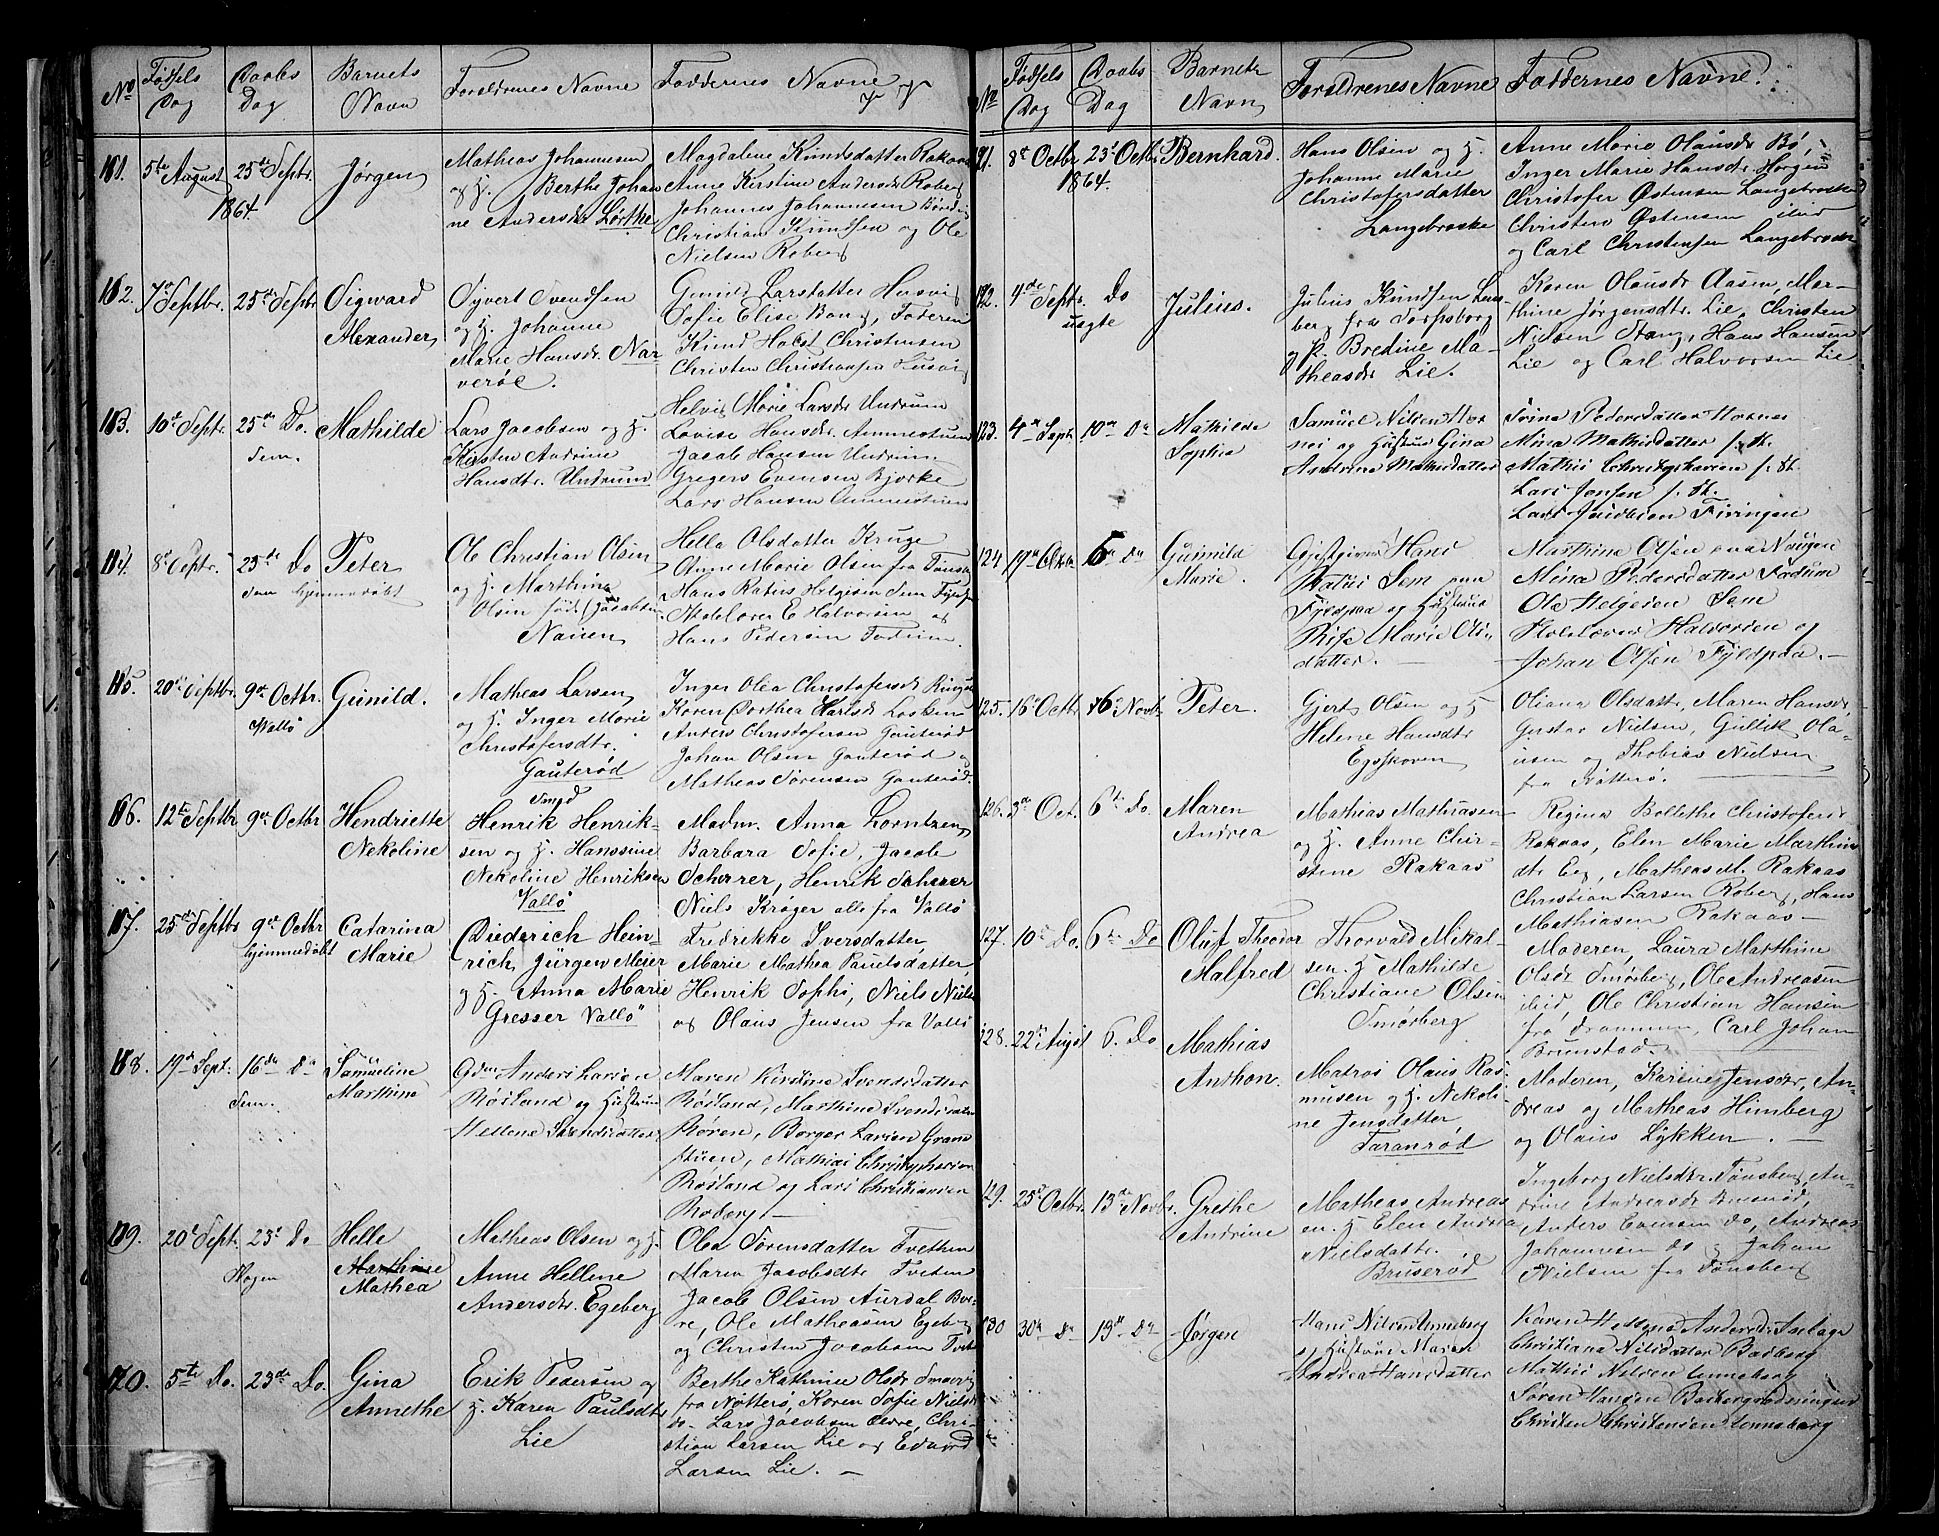 No Fødsels Dag Daabs Dag Barnets Navn Forældrenes Navne Faddernes Navne
111. 5te August 1864. 25de Septr. Jørgen
Mathias Johannesen
og H. Berthe Johan
ne Andersdr Lørthe
Magdalene Knudsdatter Rakaas
Anne Kirstine Andersdr Roberg
Johannes Johannesen
Christian Knudsen og Ole
Nielsen Roberg
112. 7de Septbr. 25de Septbr Sigvard
Alexander
Syvert Svendsen
og H. Johanne
Marie Hansdr. Nar
verøe.
Gunild Larsdatter Husvig
Sofie Elise Bang, Faderen
Knud Holst Christensen
Christen Christiansen Husvig
113. 10de Septr. 25de Do. Sem. Mathilde
Lars Jacobsen og H.
Kirsten Andrine
Hansdtr. Undrum
Helvig Marie Larsdr Undrum
Lovise Hansdr. Ammestuen
Jacob Hansen Undrum
Gregers Evensen Bjerke
Lars Hansen Ammestuen
114. 8de Septr. 25de Do Peter
Sem hjemmedøbt
Ole Christian Olsen
og H. Marthina
Olsen fød Jacobsen
Nauen
Hella Olsdatter Kruge
Anne Marie Olsen fra Tønsb.
Hans Ratius Helgesen Sem
E. Halvorsen og
Hans Pedersen Fadum.
115. 20de Septbr. 9de Octbr. Vallø Gunild.
Mathias Larsen
og H. Inger Marie
Christofersdtr.
Gauterød
Inger Olea Christofersdr
Karen Dorthea Karlsdr
Anders Christofersen Gauterød
Johan Olsen Gauterød og
Mathias Sørensen Gauterød.
116. 12te Septbr 9de Octbr Hendriette
Nekoline
Smed
Henrik Henrik-
sen og H. Hanssine
Nekoline Henriksen
Vallø
Madm. Anna Lorntzen
Barbara Sofie, Jacob
Scherrer, Henrik Scherrer
Niels Krøger alle fra Vallø
117. 25de Septbr 9de Octbr hjemmedøbt Catarina
Marie
Diederich Hein-
rich Jürgen Meier
og H. Anna Marie
Gresser Vallø
Fredrikke Iversdatter
Marie Mathea Paulsdatter,
Henrik Sophi, Niels Niels
og Olaus Jensen fra Vallø
118. 19de Septr. 16de Do Sem. Samueline
Marthine
Gdm Anders Larsen
Røsland og Hustrue
Hellene Svendsdatter
Maren Kirstine Svendsdatter
Røsland, Marthine Svendsdatter
Røren, Borger Larsen Gran
stuen, Mathias Christophersen
Røsland og Lars Christiansen
119. 20de Septr. 23de Do Hagen Helle
Marthine
Mathea
Mathias Olsen og H.
Anne Hellene
Andersdr. Egeberg
Olea Sørensdatter Tvethen
Maren Jacobsdtr Tveten
Jacob Olsen Aurdal Bve-
re, Ole Mathiasen Egeberg
og Christen Jacobsen Tvete
120. 5te Do. 23de Do. Gina
Annethe
Erik Pedersen og
H. Karen Paulsdtr
Lie
Berthe Kathrine Olsdr
fra Nøtterø, Karen Sofie Nielsdr
do. Lars Jacobsen Chri-
stian Larsen Lie og Edvard
Larsen Lie.
No Fødsels Dag Daabs Dag Barnets Navn Forældrenes Navne Faddernes Navne.
121. 8de Octbr 1864. 23de Octbr. Bernhard.
Hans Olsen og H.
Johanne Marie
Christofersdatter
Langebrække
Anne Marie Olausdr Bø,
Inger Marie Hansdr. Horgen
Christofer Østensen Langebrække
Christen Østensen ibid
og Carl Christensen Langebrække
122. 4de Septr. Do uægte Julius.
Julius Knudsen Lun-
berg fra Sarpsborg
og P. Bredine Ma-
theasdr Lie.
Karen Olausdr Aasen, Mar-
thine Jørgensdtr. Lie, Christen
Nielsen Stang, Hans Hansen
Lie og Carl Halvorsen Lie
123. 4de Septr. 10de Do Mathilde
Sophie
Samuel Nilsen Hor
nes og Hustrue Gina
Andrine Mathisdatter
Trina Pedersdatter Hornes
Mina Mathisdatter f. St.
Mathis Christophersen f. St.
Lars Jensen f. St.
Lars Jacobsen
124. 19de Oktbr 6te Do Gunnild
Marie.
Gjestgiver Hans
Ratius Sem paa
Fyldpaa og Hustrue
Marie Ols
datter.
Marthine Olsen paa Nauen
Mina Pedersdatter Fadum
Ole Helgesen Sem
Halvorsen og
Johan Olsen Fyldpaa.
125. 16de Octbr 6te Novbr Peter.
Gjert Olsen og H
Helene Hansdtr
Egsskoven
Oliana Olsdatter, Maren Hansdr
Gustav Nielsen, Gullik Ola-
usen og Thobias Nielsen
fra Nøtterø.
126. 3de Oct. 6te Do. Maren
Andrea
Mathias Mathiassen
og H. Anne Chir-
stine Rakaas
Regina Bollethe Christofersdr
Rakaas, Elen Marie Marthin
dtr Eg, Mathias M. Rakaas
Christian Larsen Roberg, Hans
Mathiasen Rakaas
127. 10de Do. 6te Do Oluf Theodor
Malfred
Thorvald Mikal-
sen. H Mathilde
Christiane Olsen
Smørberg
Moderen, Laura Marthine
Olsdr Smørberg, Ole Andreasen
ibid, Ole Christian Hansen
fra Drammen, Carl Johan
Brunstad.
128. 22de Augst 6. Do Mathias
Anthon.
Matros Olaus Ras-
musen og H. Nekoli-
ne Jensdatter
Faranrød
Moderen, Karine Jensdtr, An-
dreas og Mathias Himberg
og Olaus Lykken.
129. 25de Octbr. 13de Novbr. Grethe
Andrine
Mathias Andreas
en. H Elen Andrea
Nielsdatter.
Bruserød
Ingeborg Nielsdtr. Tønsberg, An-
drine Andersdr Bruserød,
Anders Evensen Do, Andreas
Johannesen Do og Johan
Nielsen fra Tønsberg
130 30te Do 13de Do Jørgen
Hans Nilsen Unneberg
og Hustrue Maren
Andrea Hansdatter
Karen Hellene Andersdr Aslage
Christiana Nilsdatter Basberg
Mathis Nilsen Unneberg
Søren Hansen Basbergrødningen
Christen Christensen Unneberg